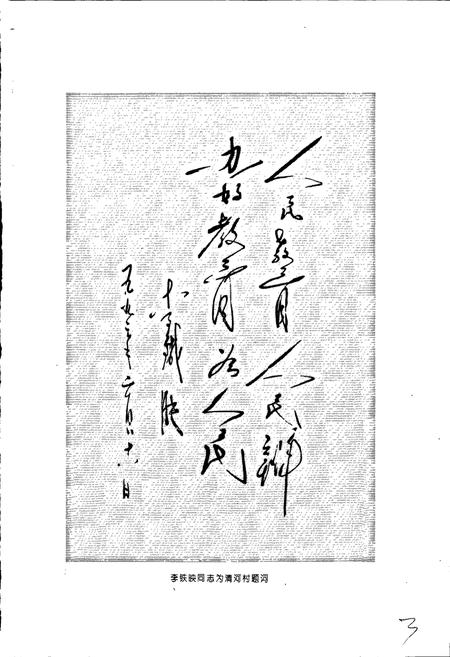 人民教育人民办
办好教育为人民
李铁映
一九九二年二月二十六日
李铁映同志为清河村题词
3